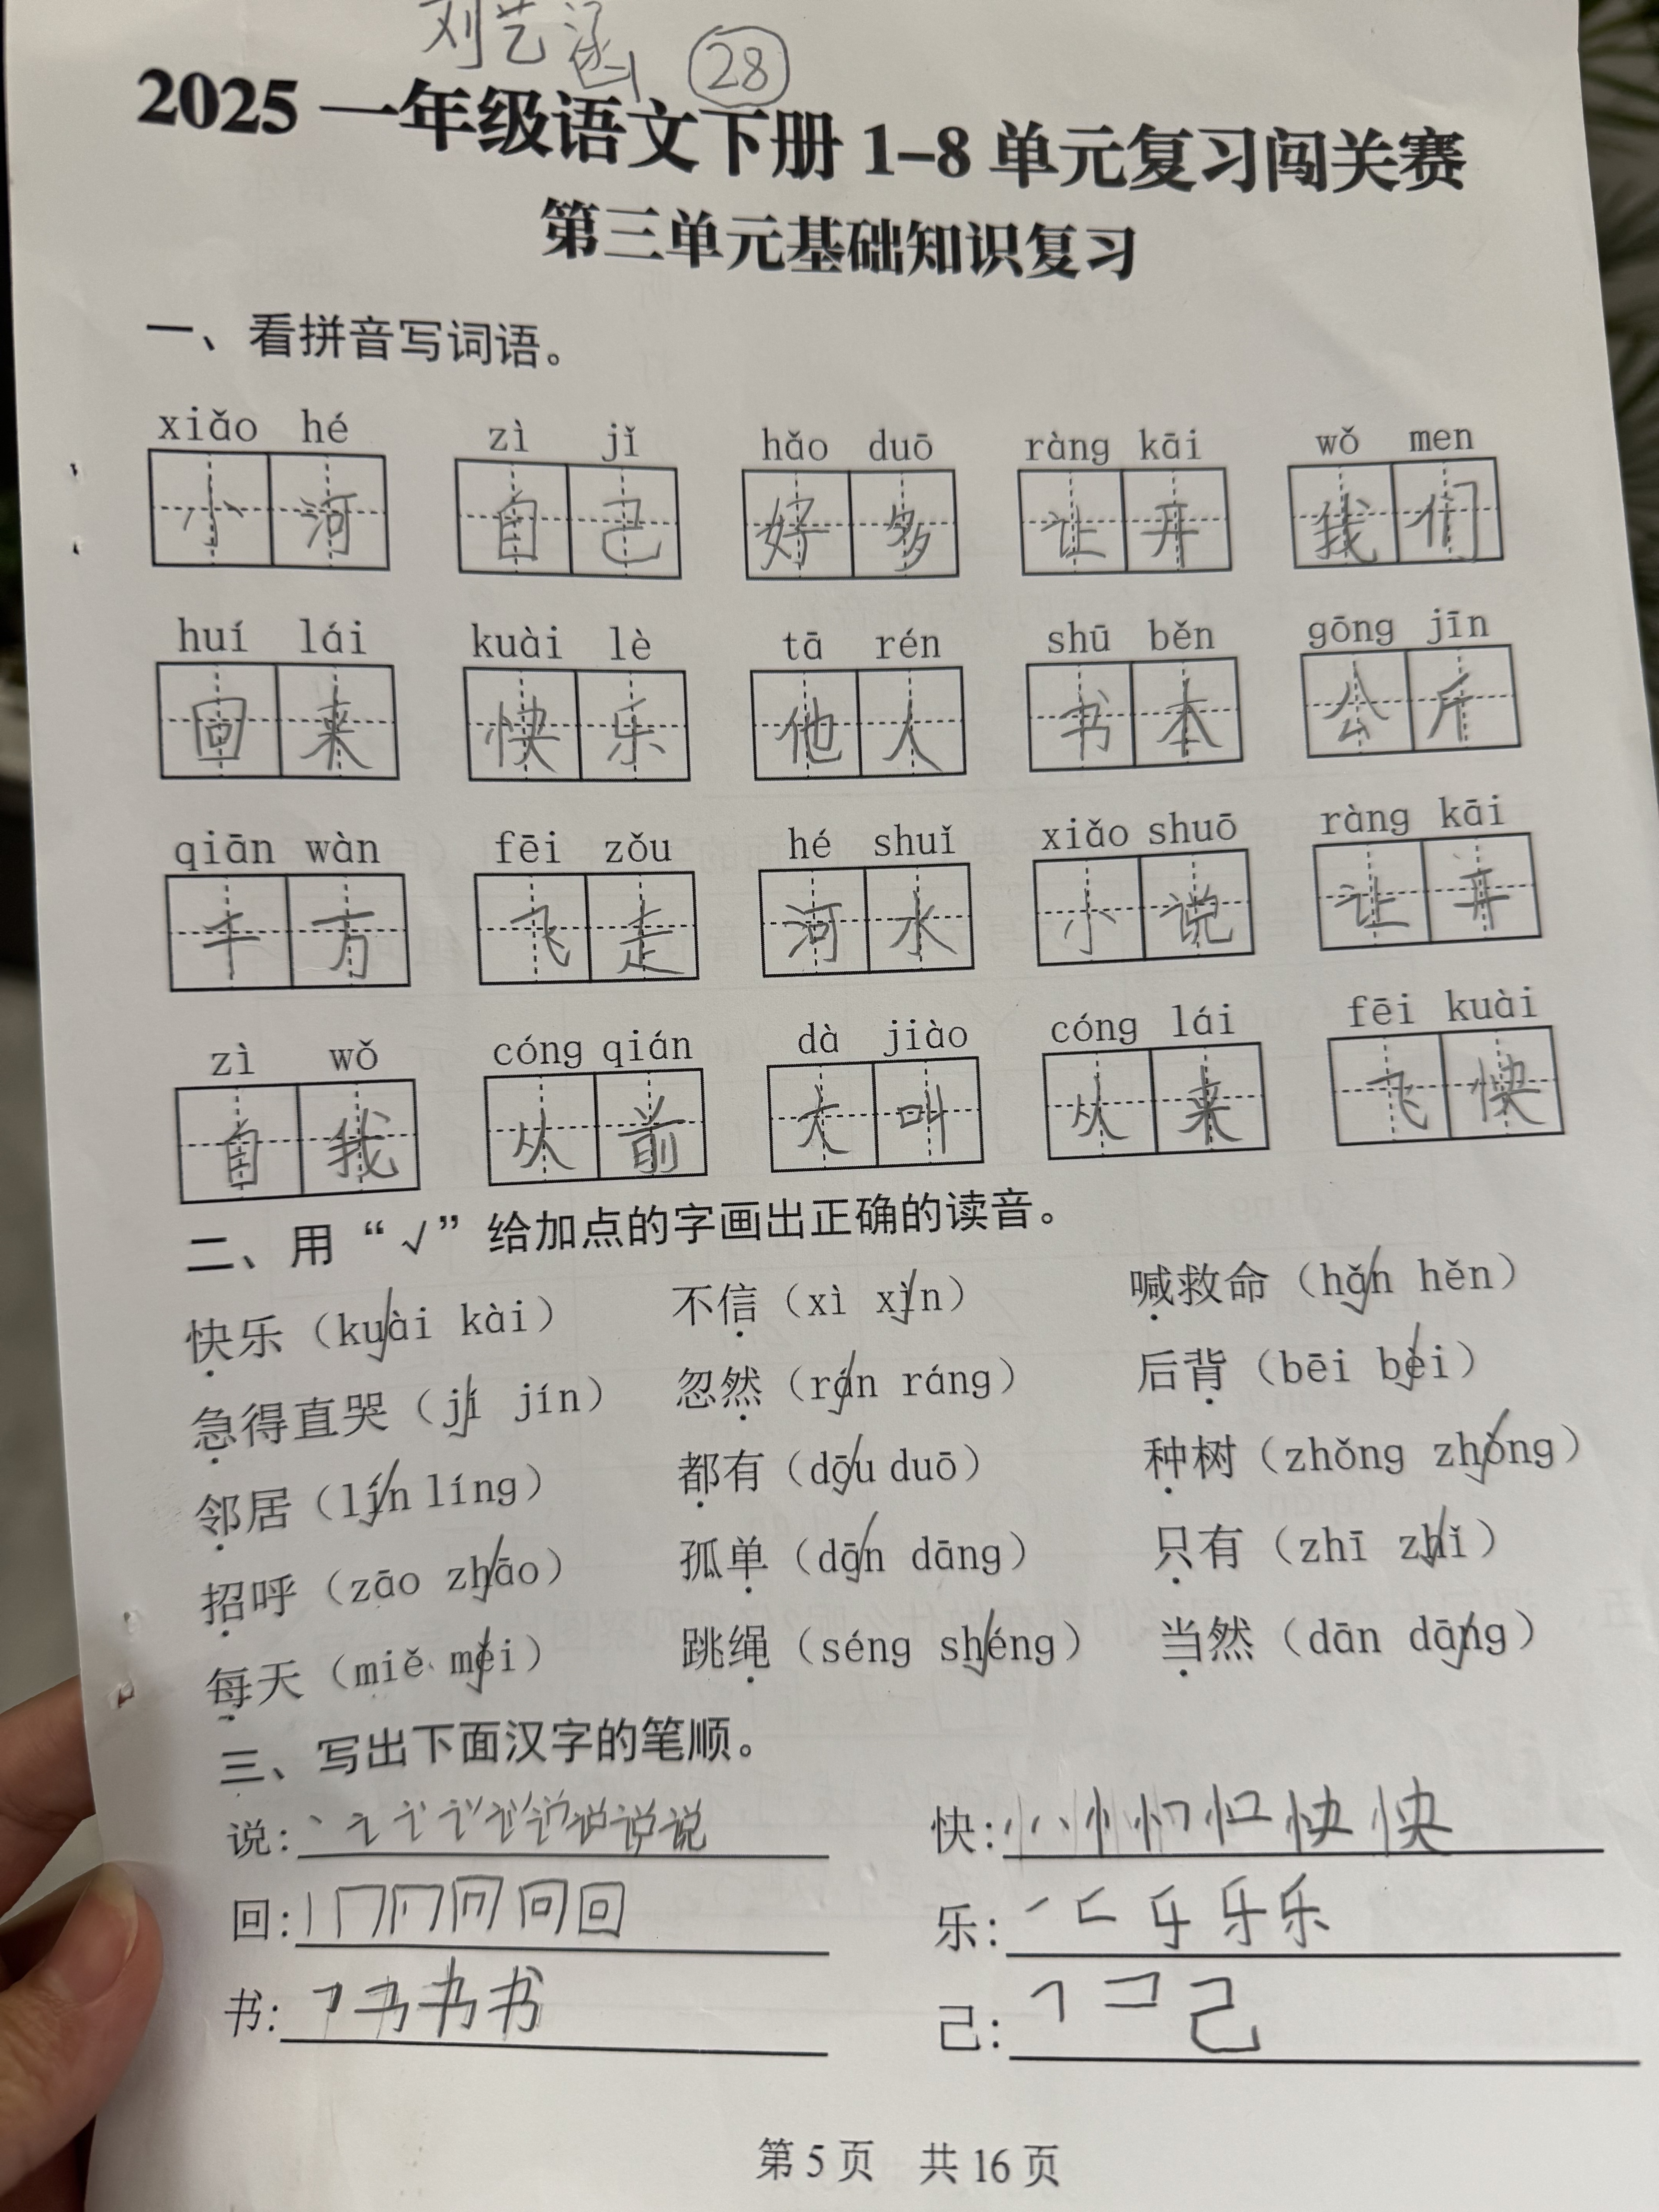 刘艺涵 28
2025 一年级语文下册 1-8 单元复习闯关赛
第三单元基础知识复习
一、看拼音写词语。
xiǎo hé zì jǐ hǎo duō ràng kāi wǒ men
小河 自己 好多 让开 我们
huí lái kuài lè tā rén shū běn gōng jīn
回来 快乐 他人 书本 公斤
qiān wàn fēi zǒu hé shuǐ xiǎo shuō ràng kāi
千万 飞走 河水 小说 让开
zì wǒ cóng qián dà jiào cóng lái fēi kuài
自我 从前 大叫 从来 飞快
二、用“√”给加点的字画出正确的读音。
快乐（kuài√ kài） 不信（xì xìn√） 喊救命（hǎn√ hěn）
急得直哭（jí√ jín） 忽然（rán√ ráng） 后背（bēi bèi√）
邻居（lín√ líng） 都有（dōu√ duō） 种树（zhǒng zhòng√）
招呼（zāo zhāo√） 孤单（dān√ dāng） 只有（zhī zhǐ√）
每天（miě měi√） 跳绳（séng shéng√） 当然（dān dāng√）
三、写出下面汉字的笔顺。
说： 说 快： 快
回：丨冂 回 乐： 乐
书： 书 己： 己
第 5 页 共 16 页